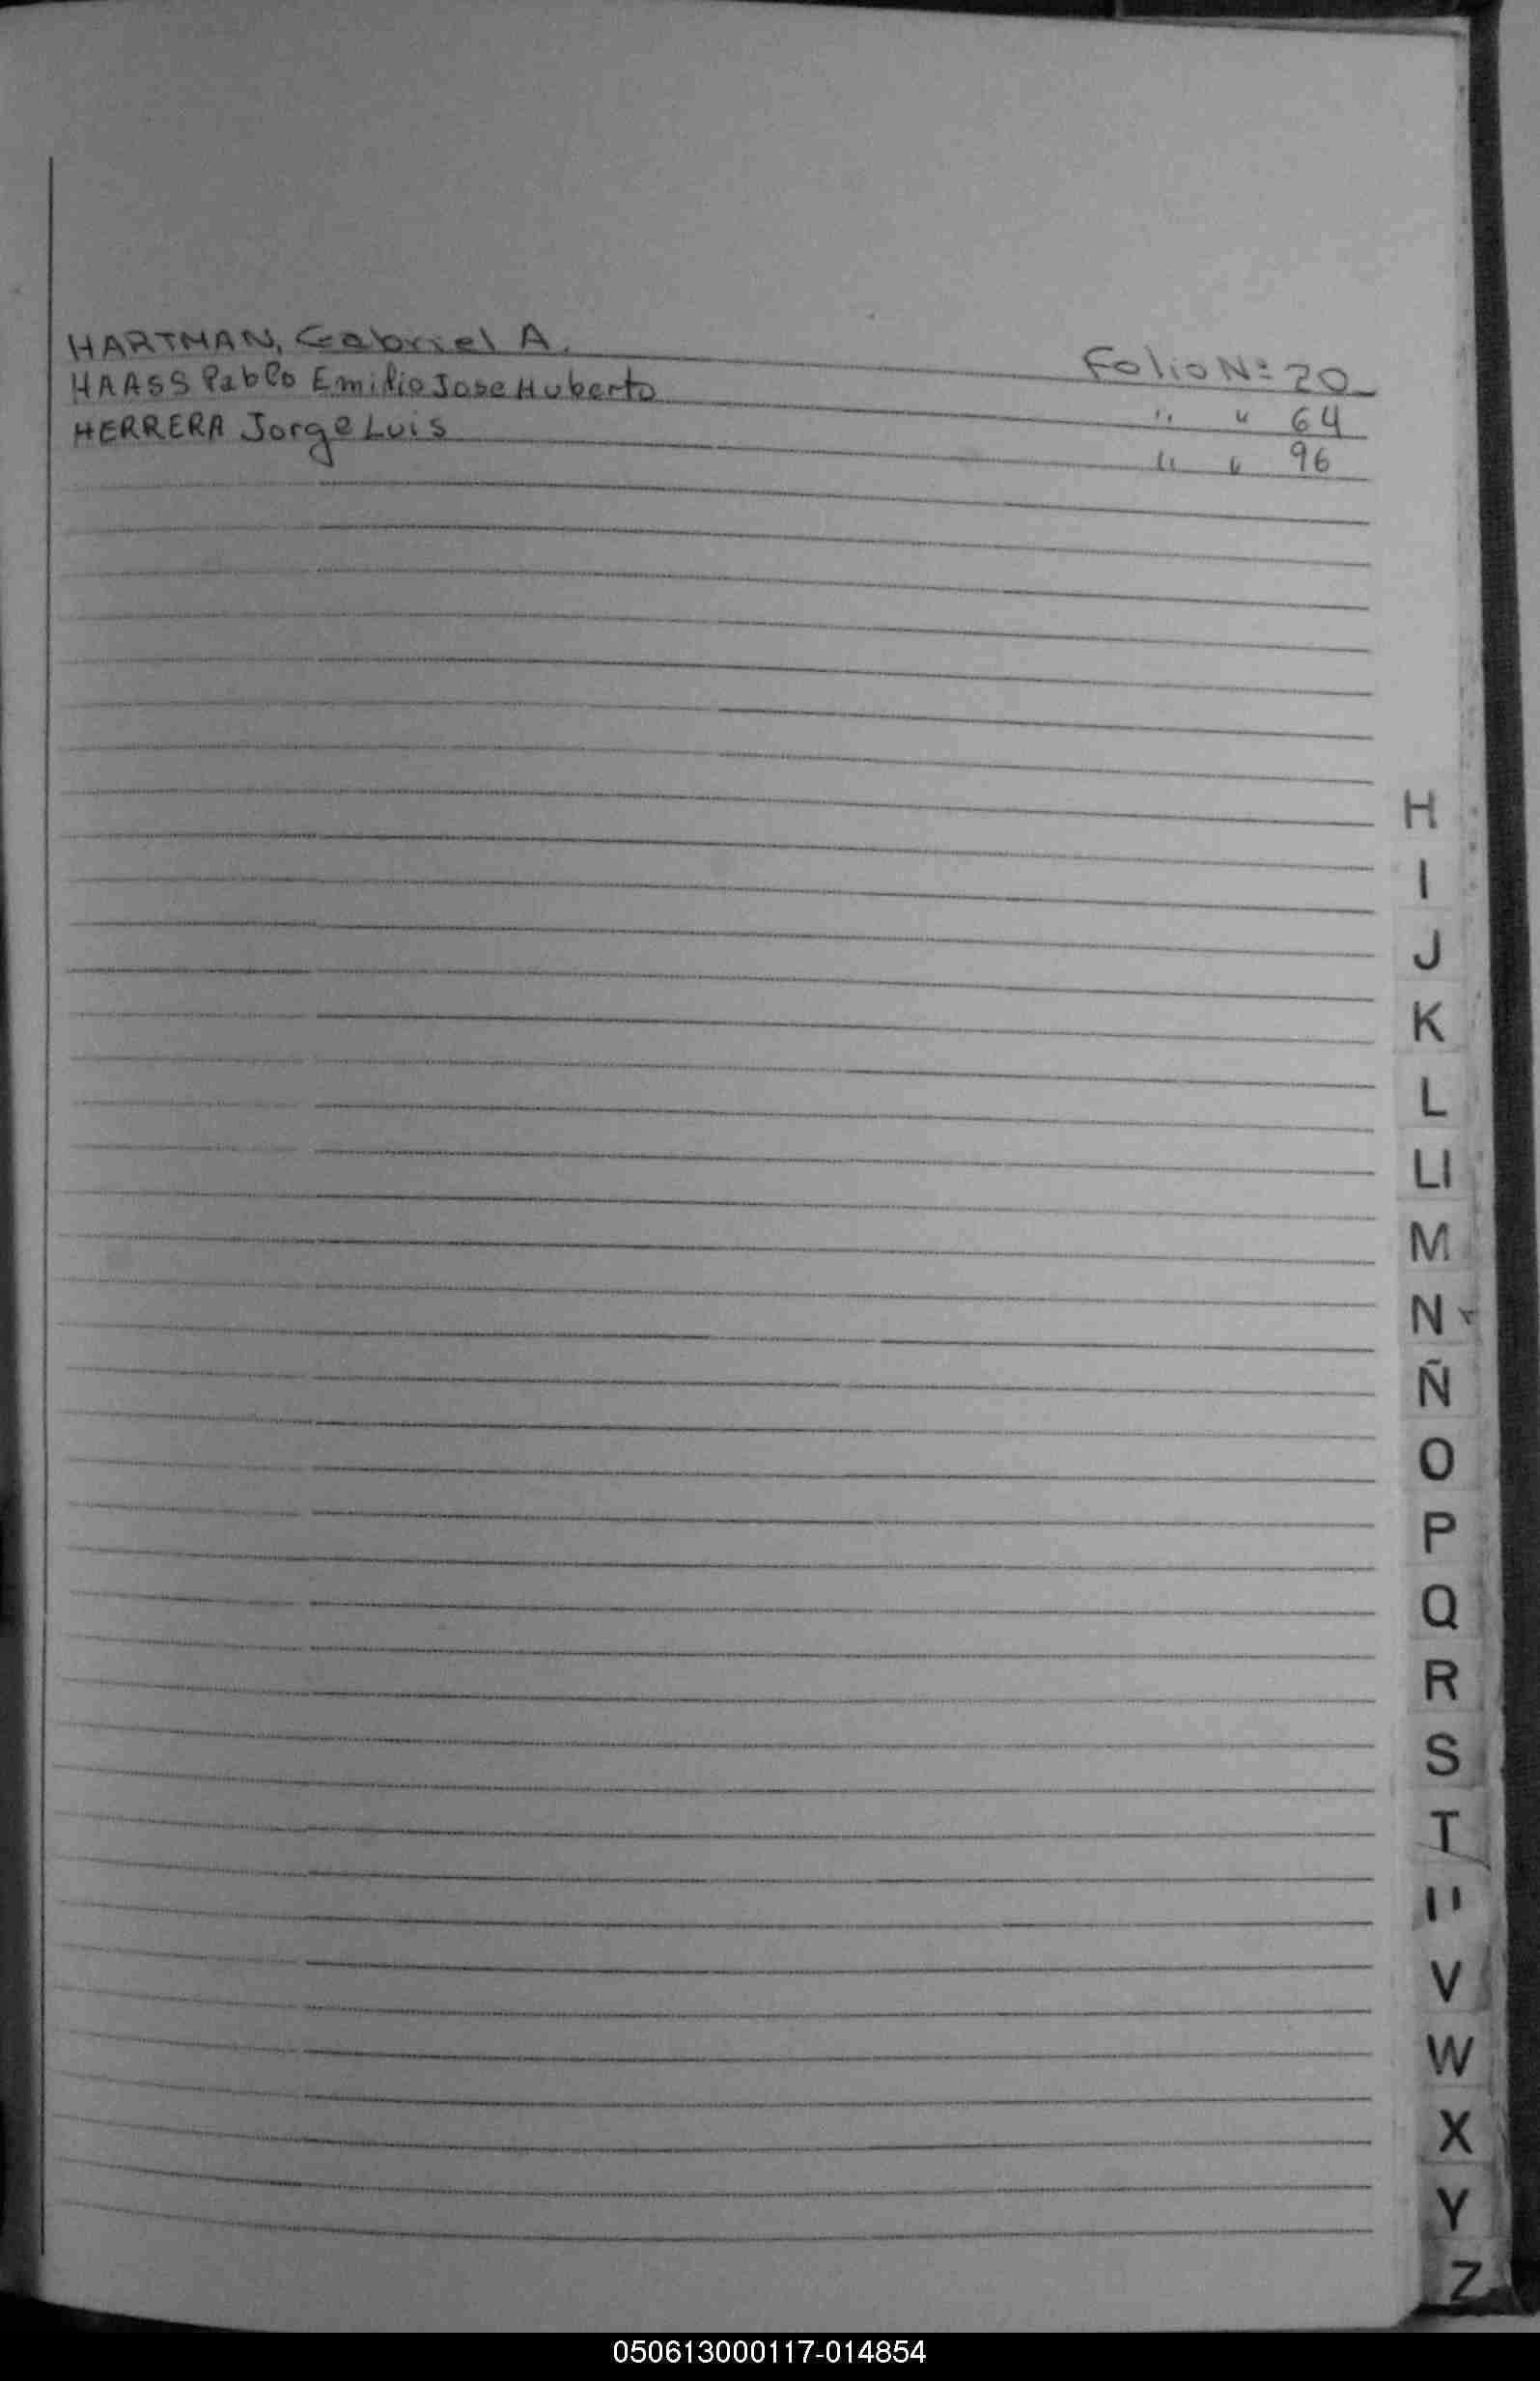 HARTMAN, Gabriel A. Folio Nº 20
HAASS Pablo Emilio Jose Huberto " " 64
HERRERA Jorge Luis " " 96
H
I
J
K
L
Ll
M
N
Ñ
O
P
Q
R
S
T
U
V
W
X
Y
Z
050613000117-014854